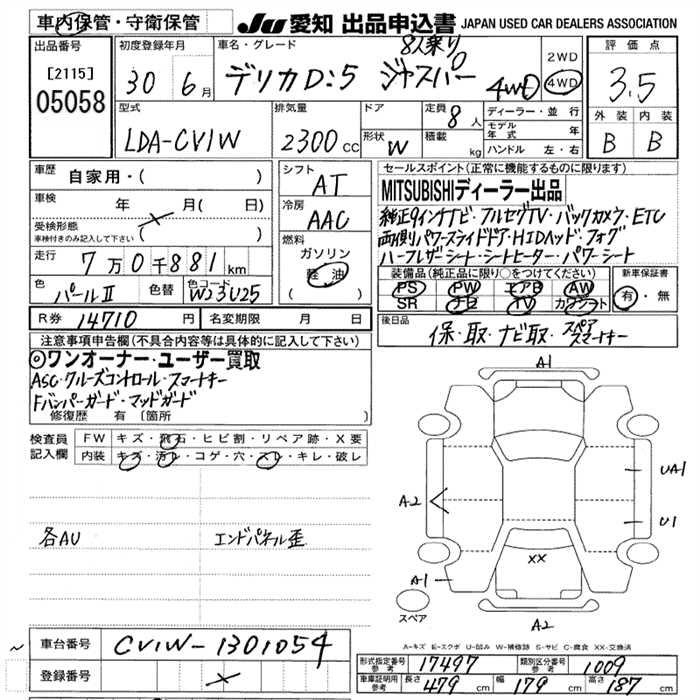 車内保管・守衛保管
JU 愛知 出品申込書 JAPAN USED CAR DEALERS ASSOCIATION
出品番号
[2115]
05058
初度登録年月
30年 6月
車名・グレード
8人乗り
デリカD:5 ジャスパー 4WD
2WD
4WD
評価点
3.5
外装 内装
B B
型式
LDA-CV1W
排気量
2300 CC
ドア
形状 W
定員 8 人
積載 kg
ディーラー・並行
モデル年式 年
ハンドル 左・右
車歴 自家用・( )
車検 年 月( 日)
受検形態
車検付きのみ記入して下さい ( )
走行 7万0千881 km
色 パールⅡ 色替 色コード W23U25
シフト
AT
冷房
AAC
燃料
ガソリン
軽油
セールスポイント(正常に機能するものに限ります)
MITSUBISHIディーラー出品
純正9インチナビ・フルセグTV・バックカメラ・ETC
両側パワースライドドア・HIDヘッド・フォグ
ハーフレザーシート・シートヒーター・パワーシート
装備品(純正品に限り○をつけてください)
PS PW エアB AW
SR ナビ TV カワシート
新車保証書
有・無
R券 14710 円 名変期限 月 日
後日品 保・取・ナビ取・スペアスマーキー
注意事項申告欄(不具合内容等は具体的に記入して下さい)
◎ワンオーナー・ユーザー買取
ASC・クルーズコントロール・スマートキー
Fバンパーガード・マッドガード
修復歴 有 〔箇所 〕
検査員記入欄
FW キズ・飛石・ヒビ割・リペア跡・X要
内装 キズ・汚レ・コゲ・穴・スレ・キレ・破レ
各AU エンドパネル歪
A1
UA1
A2
U1
XX
A1
スペア
A2
A-キズ E-エクボ U-凹み W-補修跡 S-サビ C-腐食 XX-交換済
車台番号 CV1W-1301054
登録番号
形式指定番号 参考 17497 類別区分番号 参考 1009
車庫証明用 参考 長さ 479 cm 幅 179 cm 高さ 187 cm